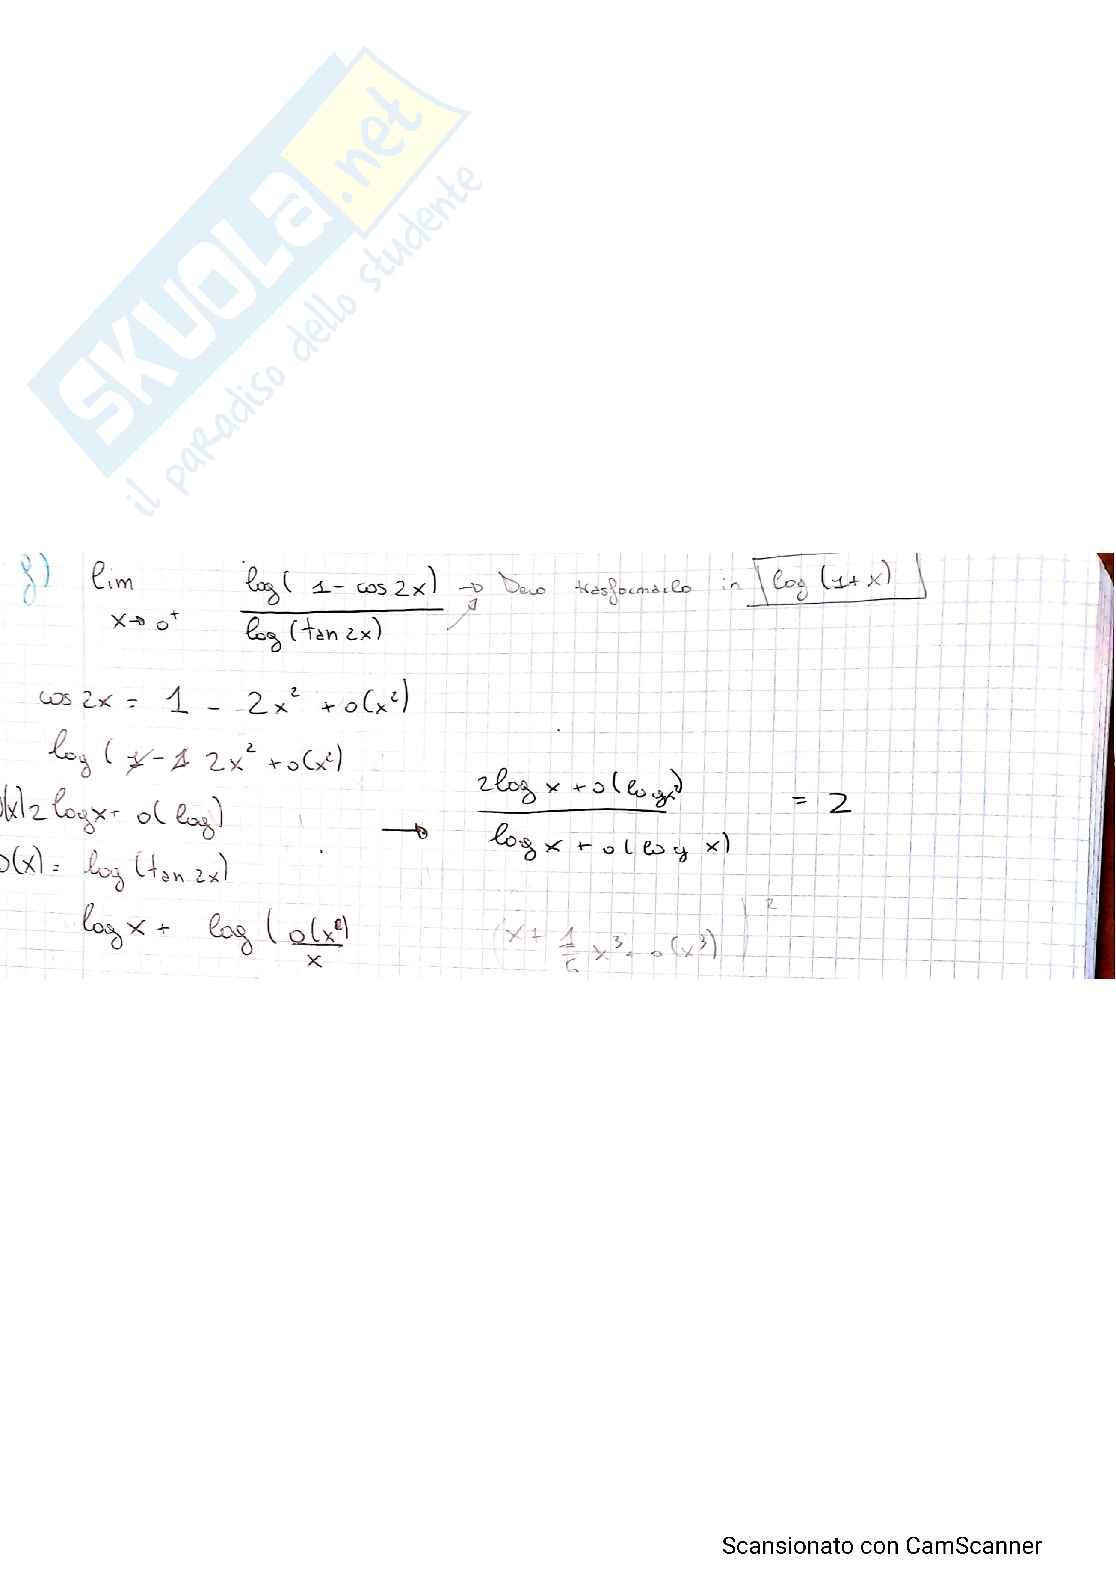 SKUOLA.net
il paradiso dello studente
f) lim x→0⁺ log(1-cos2x) / log(tan2x) → Devo trasformarlo in log(1+x)
cos2x = 1 - 2x² + o(x²)
log(1-1 2x² + o(x²)
2logx + o(log)
→ 2logx + o(logx²) / logx + o(logx) = 2
D(x) = log(tan2x)
logx + log(o(x²)/x
(x + 1/6 x³ + o(x³))²
Scansionato con CamScanner